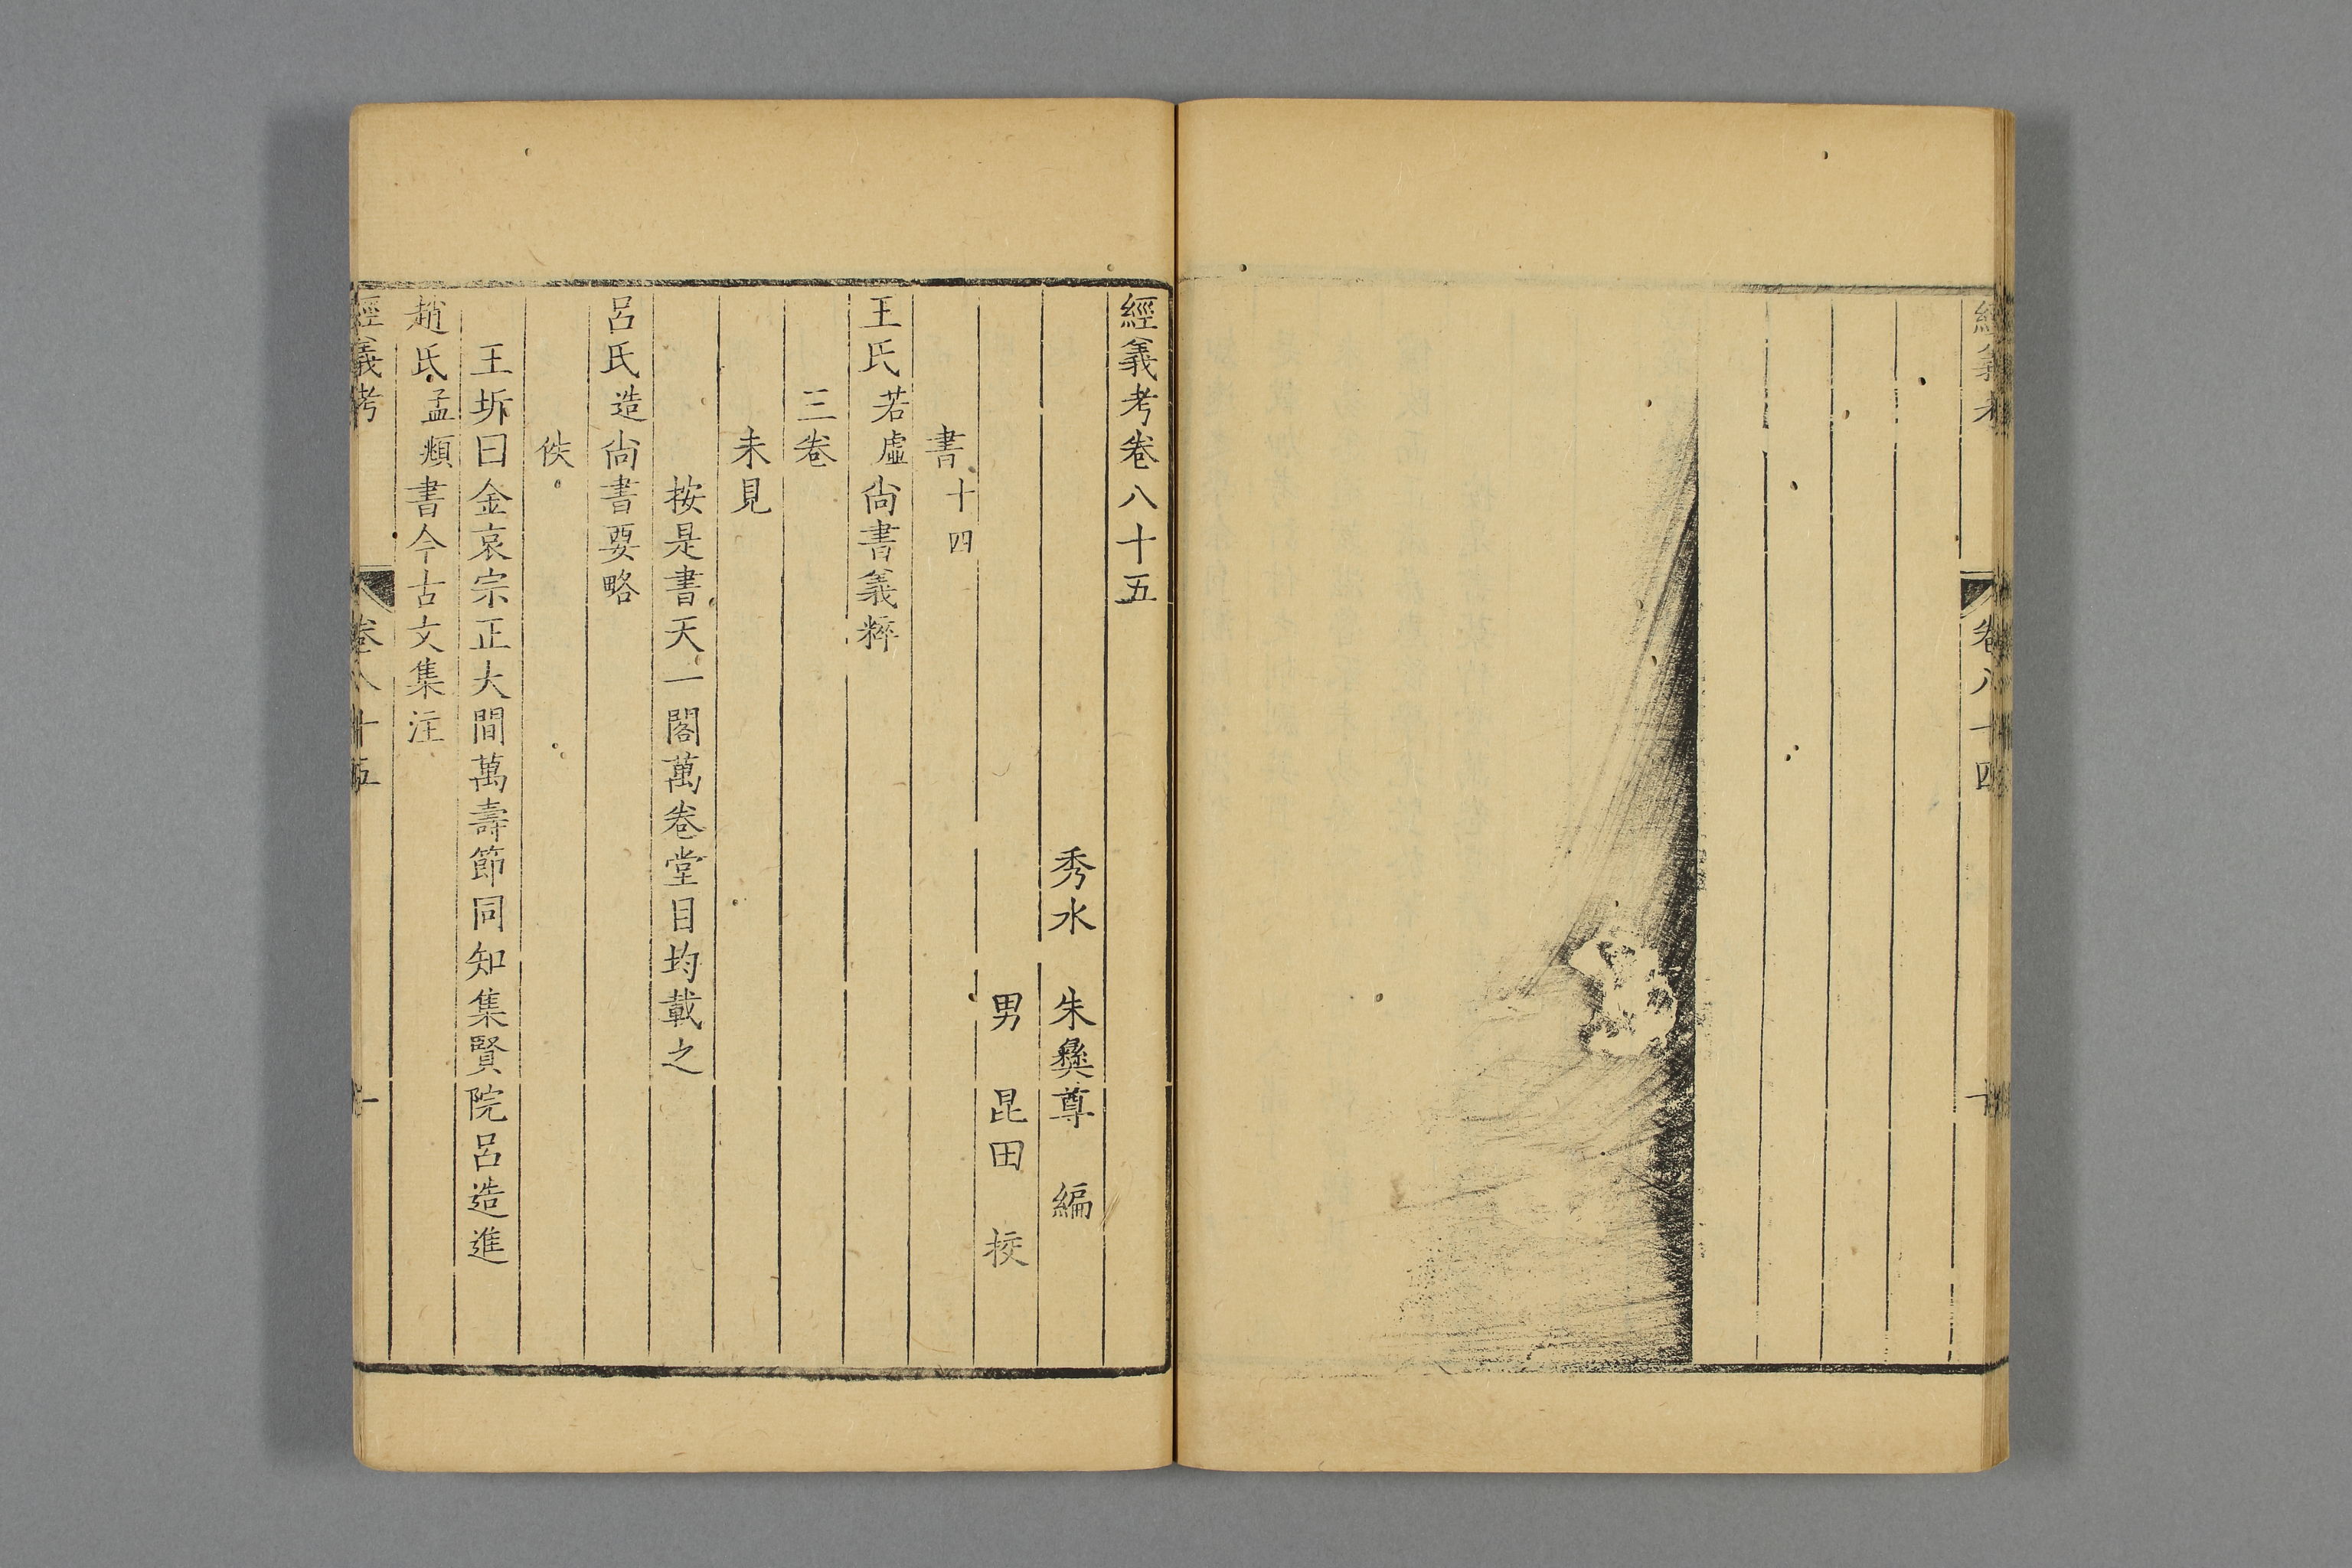 經義考
卷八十四
十
經義考卷八十五
秀水 朱彝尊 編
男 昆田 挍
書十四
王氏若虛尚書義粹
三卷
未見
按是書天一閣萬卷堂目均載之
呂氏造尚書要略
佚
王圻曰金哀宗正大間萬壽節同知集賢院呂造進
趙氏孟頫書今古文集注
經義考
卷八十五
一